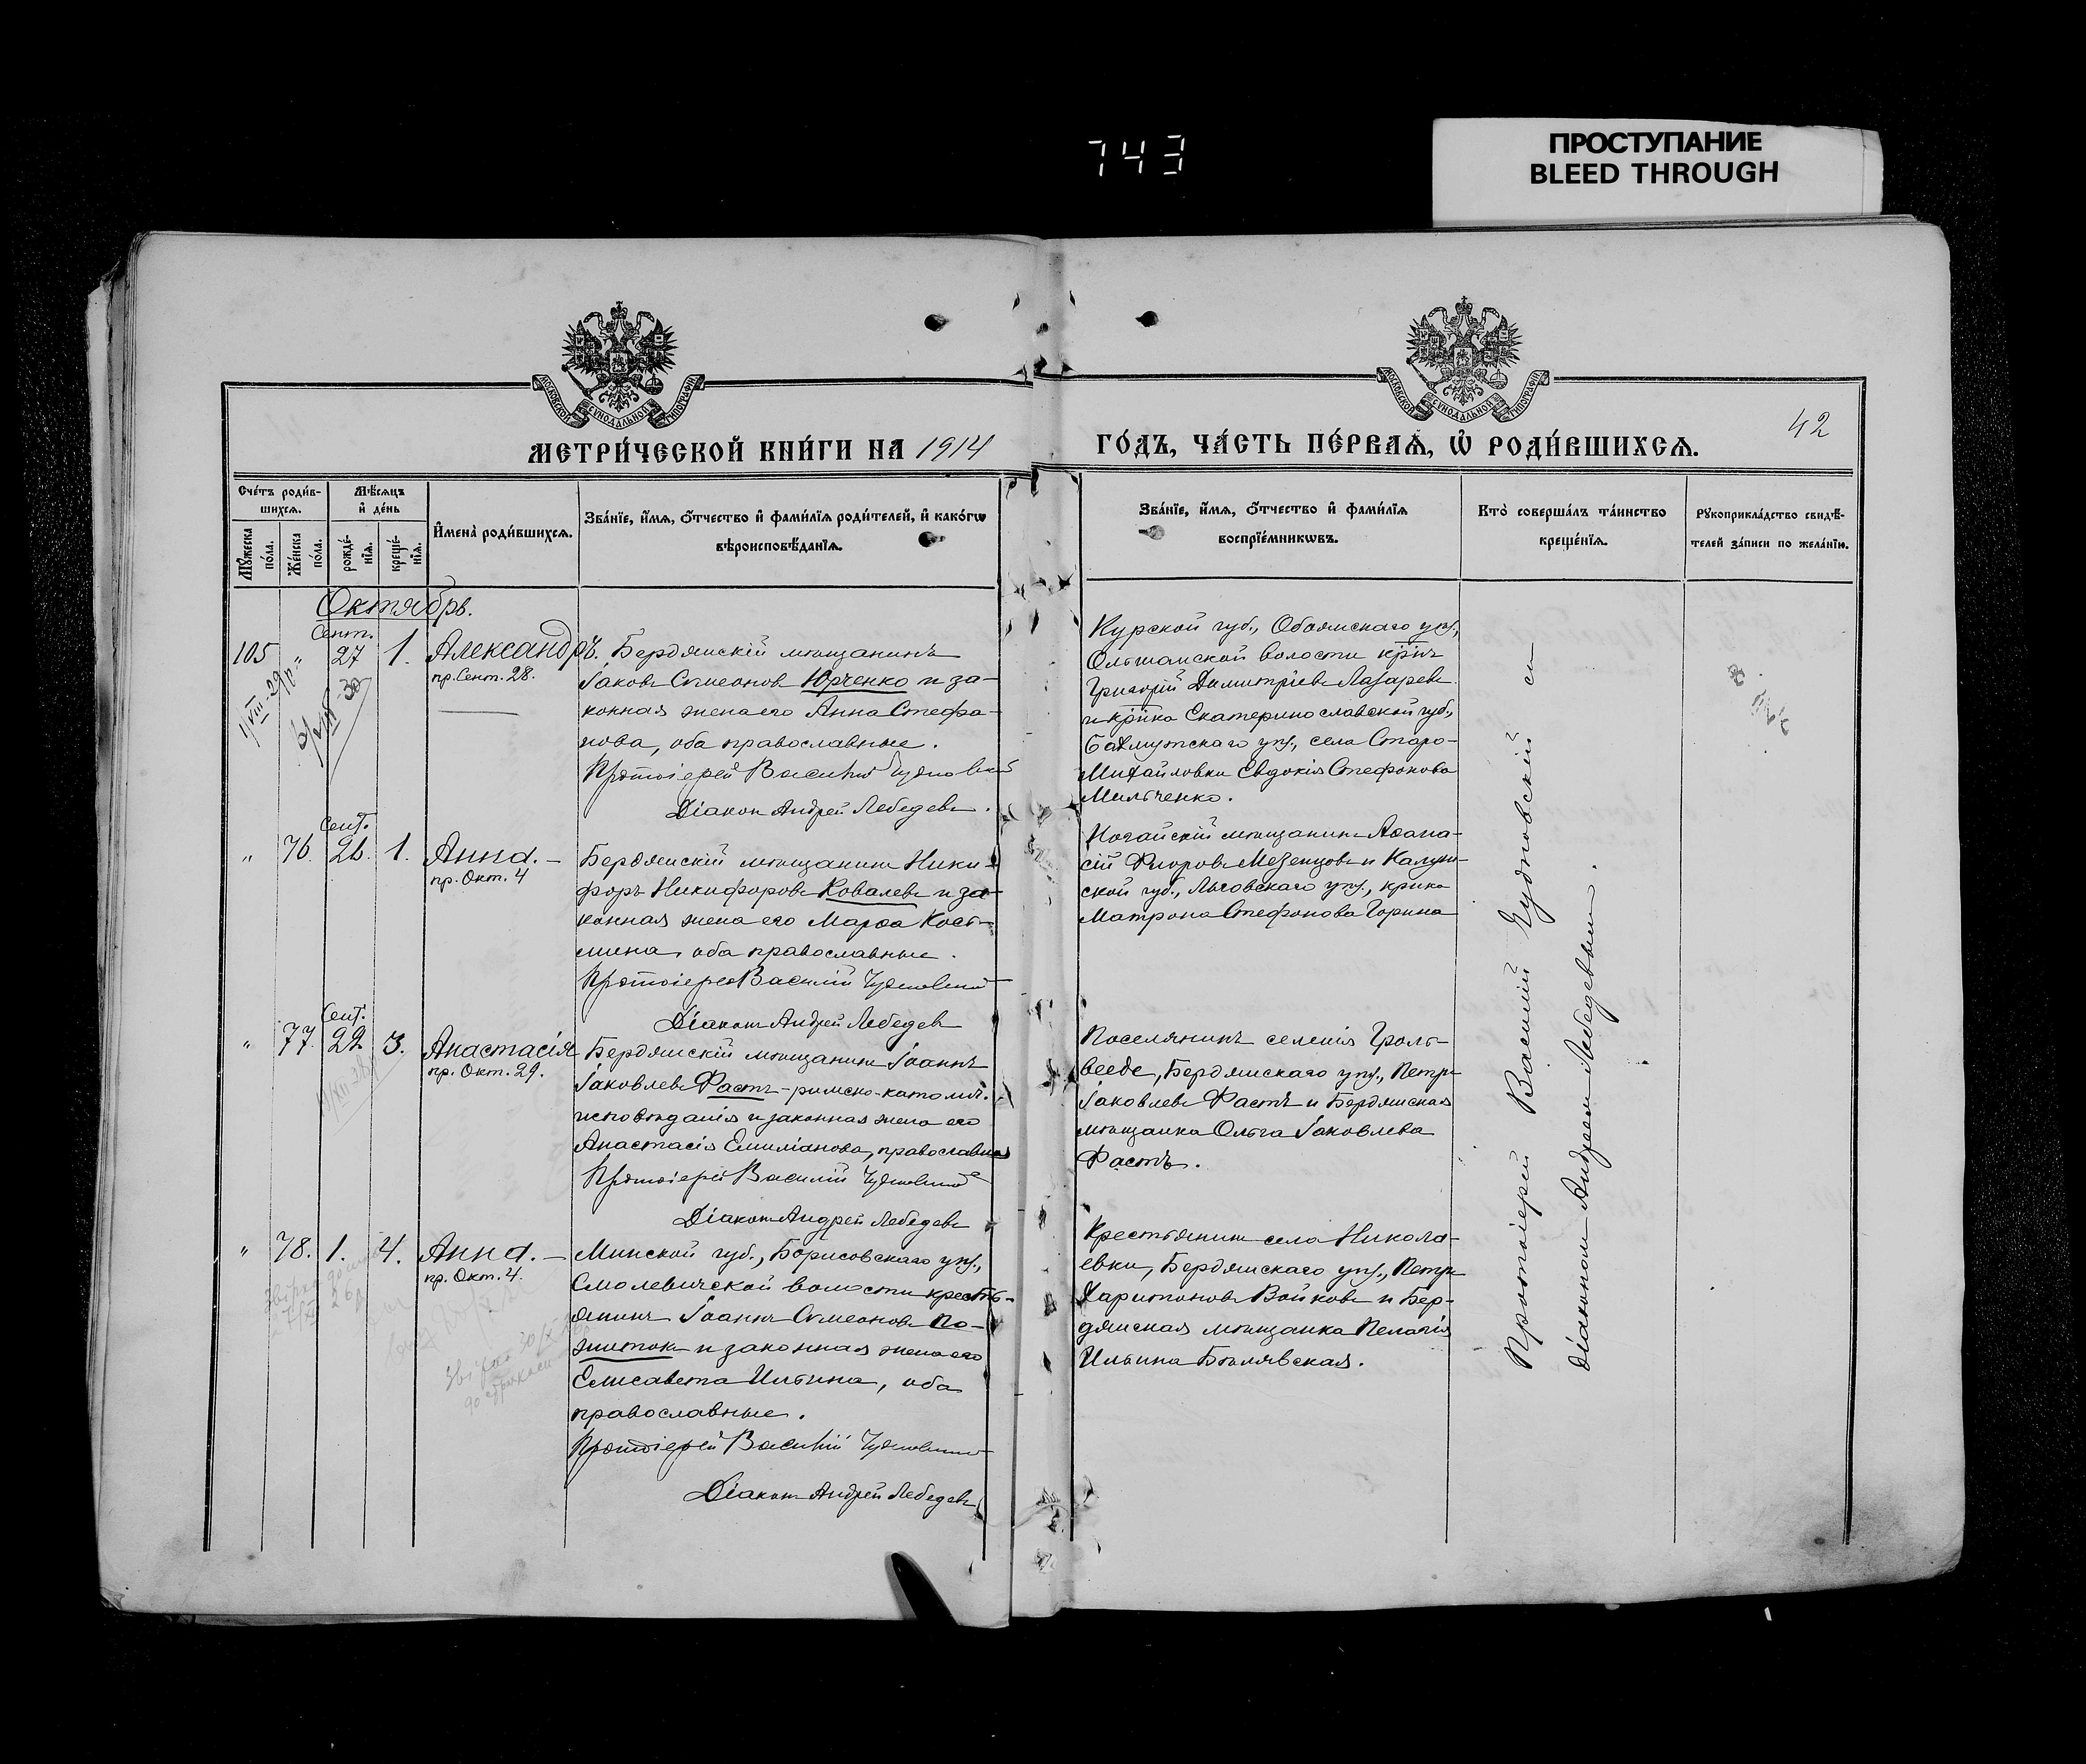 743
ПРОСТУПАНИЕ
BLEED THROUGH
МОСКОВСКОЙ СѴНОДАЛЬНОЙ ТИПОГРАФІИ
МОСКОВСКОЙ СѴНОДАЛЬНОЙ ТИПОГРАФІИ
42
МЕТРИ́ЧЕСКОЙ КНИ́ГИ НА 1914
ГО́ДЪ, ЧА́СТЬ ПЕ́РВАѦ, Ѡ҆ РОДИ́ВШИХСѦ.
Сче́тъ роди́в-
шихсѧ.
Мѣ́сѧцъ
и҆ де́нь
Мꙋ́жеска
по́ла.
Же́нска
по́ла.
рожде́-
нїѧ.
креще́-
нїѧ.
И҆мена̀ роди́вшихсѧ.
Зва́нїе, и҆́мѧ, ѻ҆́тчество и҆ фами́лїѧ роди́телей, и҆ како́гѡ
вѣроисповѣ́данїѧ.
Зва́нїе, и҆́мѧ, ѻ҆́тчество и҆ фами́лїѧ
воспрїе́мникѡвъ.
Кто̀ соверша́лъ та́инство
креще́нїѧ.
Рꙋкоприкла́дство свидѣ́-
телей за́писи по жела́нїю.
Октябрь.
105 „ Сент. 27 1. Александръ.
пр. Сент. 28.
Бердянскій мѣщанинъ
Іаковъ Симеоновъ Юрченко и за-
конная жена его Анна Стефа-
нова, оба православные.
Протоіерей Василій Чудновскій
Діаконъ Андрей Лебедевъ.
Курской губ., Обоянскаго уѣз.,
Ольшанской волости кр͞нъ
Григорій Димитріевъ Лазаревъ
и кр͞нка Екатеринославской губ.,
Бахмутскаго уѣз., села Старо-
Михайловки Евдокія Стефанова
Мильченко.
„ 76. Сент. 26. 1. Анна.
пр. Окт. 4
Бердянскій мѣщанинъ Ники-
форъ Никифоровъ Ковалевъ и за-
конная жена его Марѳа Кось-
мина, оба православные.
Протоіерей Василій Чудновскій
Діаконъ Андрей Лебедевъ
Ногайскій мѣщанинъ Аѳана-
сій Флоровъ Мезенцовъ и
ской губ., Льговскаго уѣз., кр-нка
Матрона Стефанова Горина
„ 77. Сент. 22 3. Анастасія
пр. Окт. 29.
Бердянскій мѣщанинъ Іоаннъ
Іаковлевъ Фастъ - римско-католич.
исповѣданія и законная жена его
Анастасія Емиліанова, православная
Протоіерей Василій Чудновскій
Діаконъ Андрей Лебедевъ
Поселянинъ селенія
Бердянскаго уѣз., Петръ
Іаковлевъ Фастъ и Бердянская
мѣщанка Ольга Іаковлева
Фастъ.
„ 78. 1. 4. Анна.
пр. Окт. 4.
Минской губ., Борисовскаго уѣз.,
Смолевичской волости кресть-
янинъ Іоаннъ Симеоновъ По-
житокъ и законная жена его
Елисавета Ильина, оба
православные.
Протоіерей Василій Чудновскій
Діаконъ Андрей Лебедевъ
Крестьянинъ села Никола-
евки, Бердянскаго уѣз., Петръ
Харитоновъ Войковъ и Бер-
дянская мѣщанка Пелагія
Ильина Бѣлявская.
Протоіерей Василій Чудновскій съ
діакономъ Андреем Лебедевымъ.